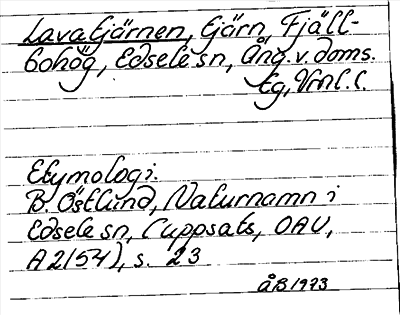 Lavatjärnen, tjärn, Fjäll-
bohög, Edsele sn, Ång. v. doms.
tg, Vrnl. l.
Etymologi:
B. Östlund, Naturnamn i
Edsele sn, (uppsats, OAU,
A 2154), s. 23
åB 1973